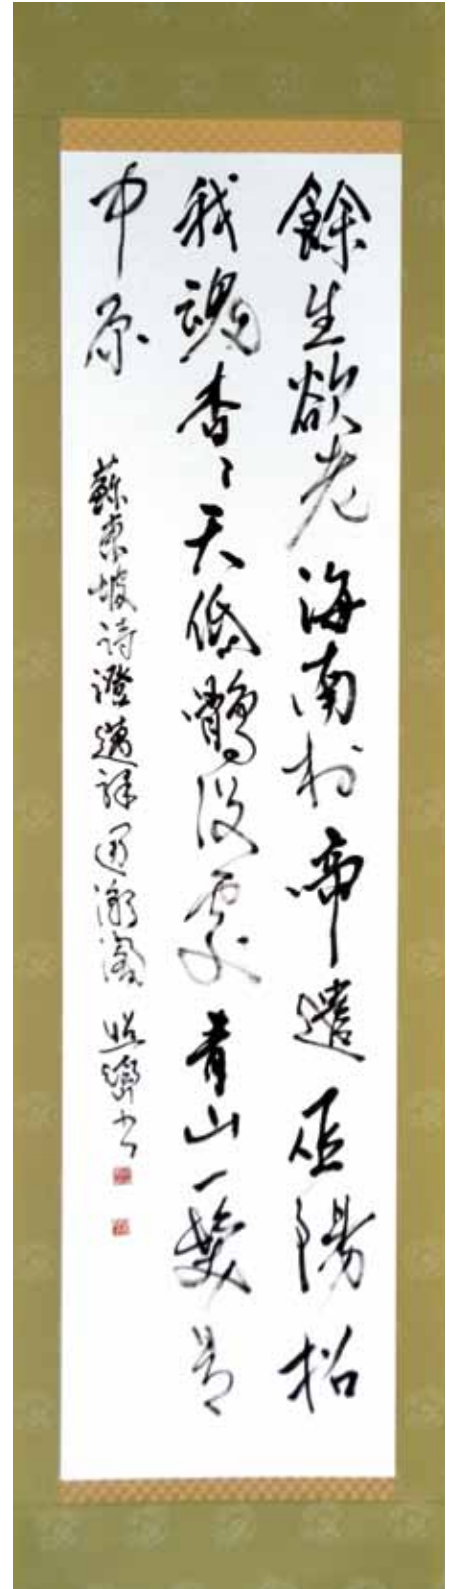 餘生欲老海南村帝遣巫陽招
我魂杳々天低鶻没處青山一髮是
中原
蘇東坡詩澄邁驛通潮閣 書